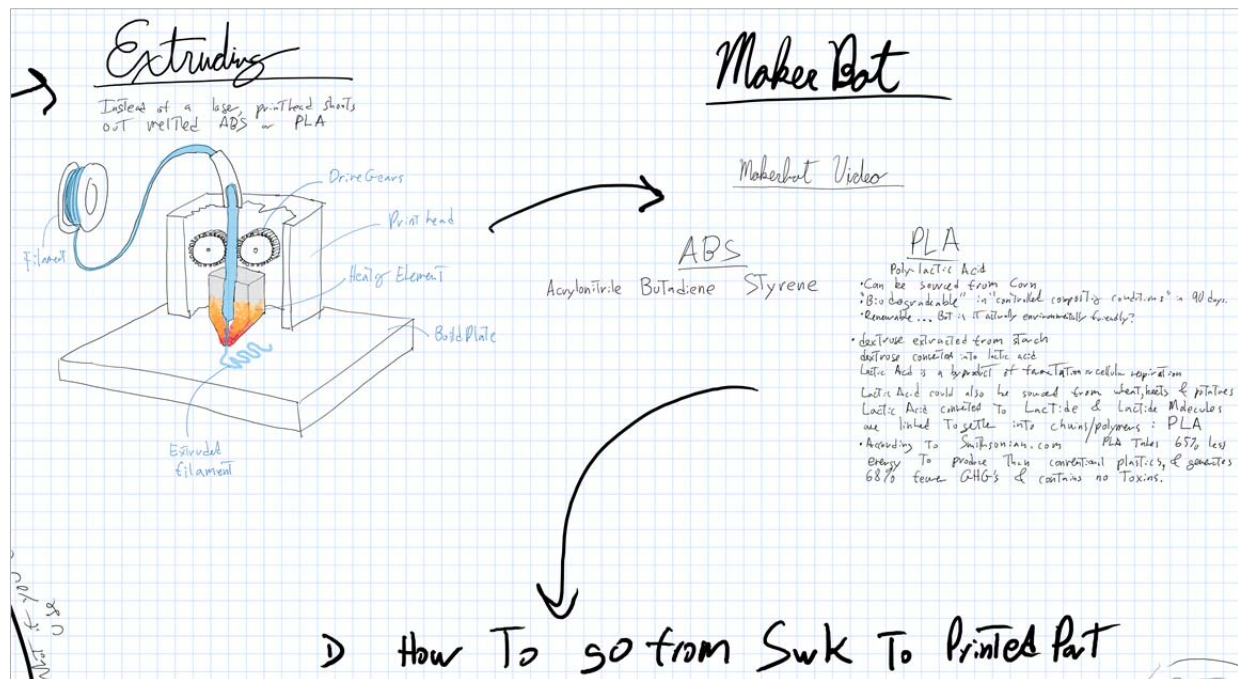 Extruding
Instead of a laser, printhead shoots
out meltled ABS or PLA
Drive Gears
Print head
Filament
Heatg Element
Build Plate
Extruded
filament
MakerBot
Makerbot Video
ABS
Acrylonitrile Butadiene Styrene
PLA
Poly-lactic Acid
• Can be sourced from Corn
• "Biodegradeable" in "controlled composting conditions" in 90 days.
• Renewable ... But is it actually environmentally friendly?
• dextrose extracted from starch
dextrose converted into lactic acid
Lactic Acid is a byproduct of fermentation or cellular respiration
Lactic Acid could also be sourced from wheat, beets & potatoes
Lactic Acid converted to Lactide & Lactide Molecules
are linked together into chains/polymers: PLA
• According to Smithsonian.com / PLA Takes 65% less
energy To produce Than conventional plastics, & generates
68% fewer GHG's & contains no Toxins.
if you
use
D How To go from Swk To Printed Part